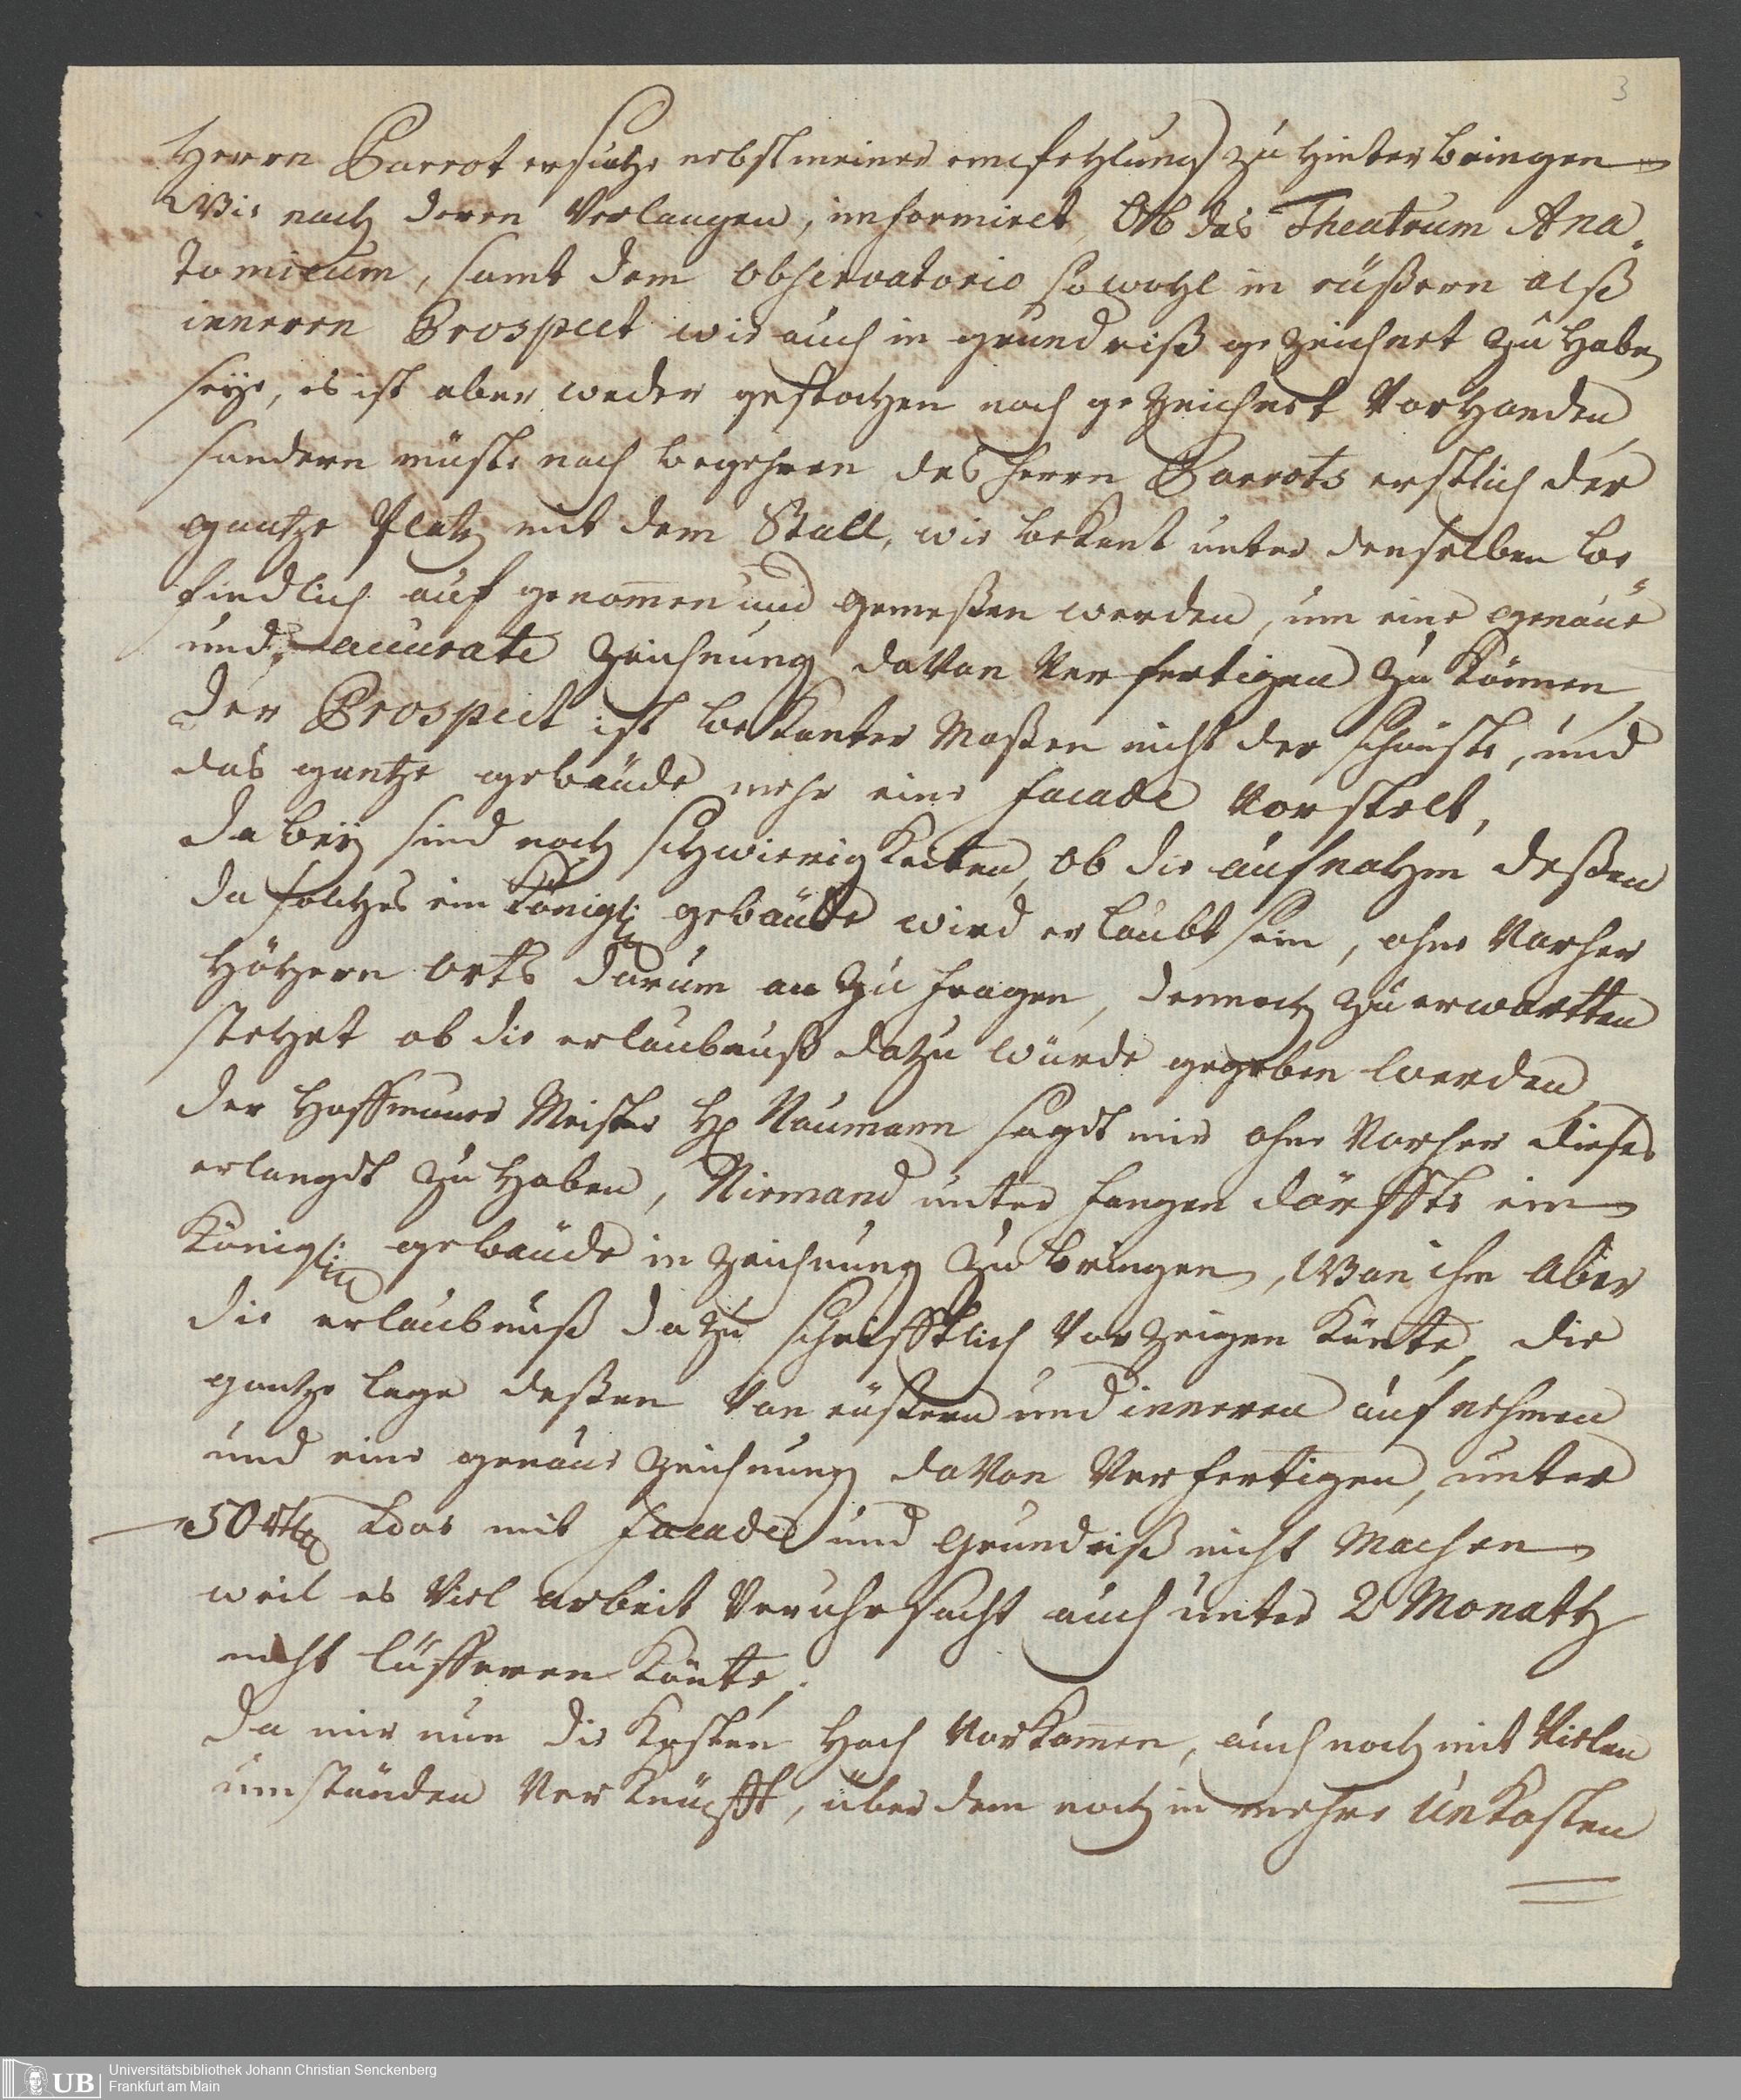 3
Herrn Parrot ersuche nebst meiner empfehlung zu hinterbringen
Wie nach deren Verlangen, informiret, Ob das Theatrum Ana
tomicum, samt dem Observatorio so wohl in eüßern alß
inneren Prospect wie auch in grundriß gezeichnet zu haben
seÿe, es ist aber weder gestochen noch gezeichnet Vorhanden
sondern müste nach begehren des Herrn Parrots erstlich der
gantze Platz mit dem Stall, wie bekant unter denselben be
findlich auf genom̅en und gemeßen werden, um eine genaue
und accurate Zeichnung davon Verfertigen zu können,
der Prospect ist bekanter Maßen nicht der schönste, und
das gantze gebäude mehr eine facade Vorstelt,
da beÿ sind noch schwierigkeiten, ob die aufnahm deßen
da solches ein Königl: gebäude wird erlaubt sein, ohne Vorher
höhern orts darum an zu fragen, dennoch zu erwartten
stehet ob die erlaubnuß dazu würde gegeben werden,
der Hoffmaurer Meister H Naumann sagdt mir ohne Vorher dieses
erlangdt zu haben, Niemand unter fangen dörffte ein
Königl: gebäude in Zeichnung zu bringen, Wan ihm Aber
die erlaubnuß dazu schrifftlich Vorzeigen Könte, die
gantze lage deßen Von eüßern und inneren aufnehmen
und eine genaue Zeichnung davon Verfertigen, unter
50 rthl das mit facade und grundriß nicht Machen
weil es Viel arbeit Veruhrsacht auch unter 2 Monath
nicht lüfferen Könte.
da mir nun die Kosten hoch Vorkom̅en, auch noch mit Vielen
umständen Verknüpfft, über dem noch in mehre Unkosten
UB Universitätsbibliothek Johann Christian Senckenberg
Frankfurt am Main